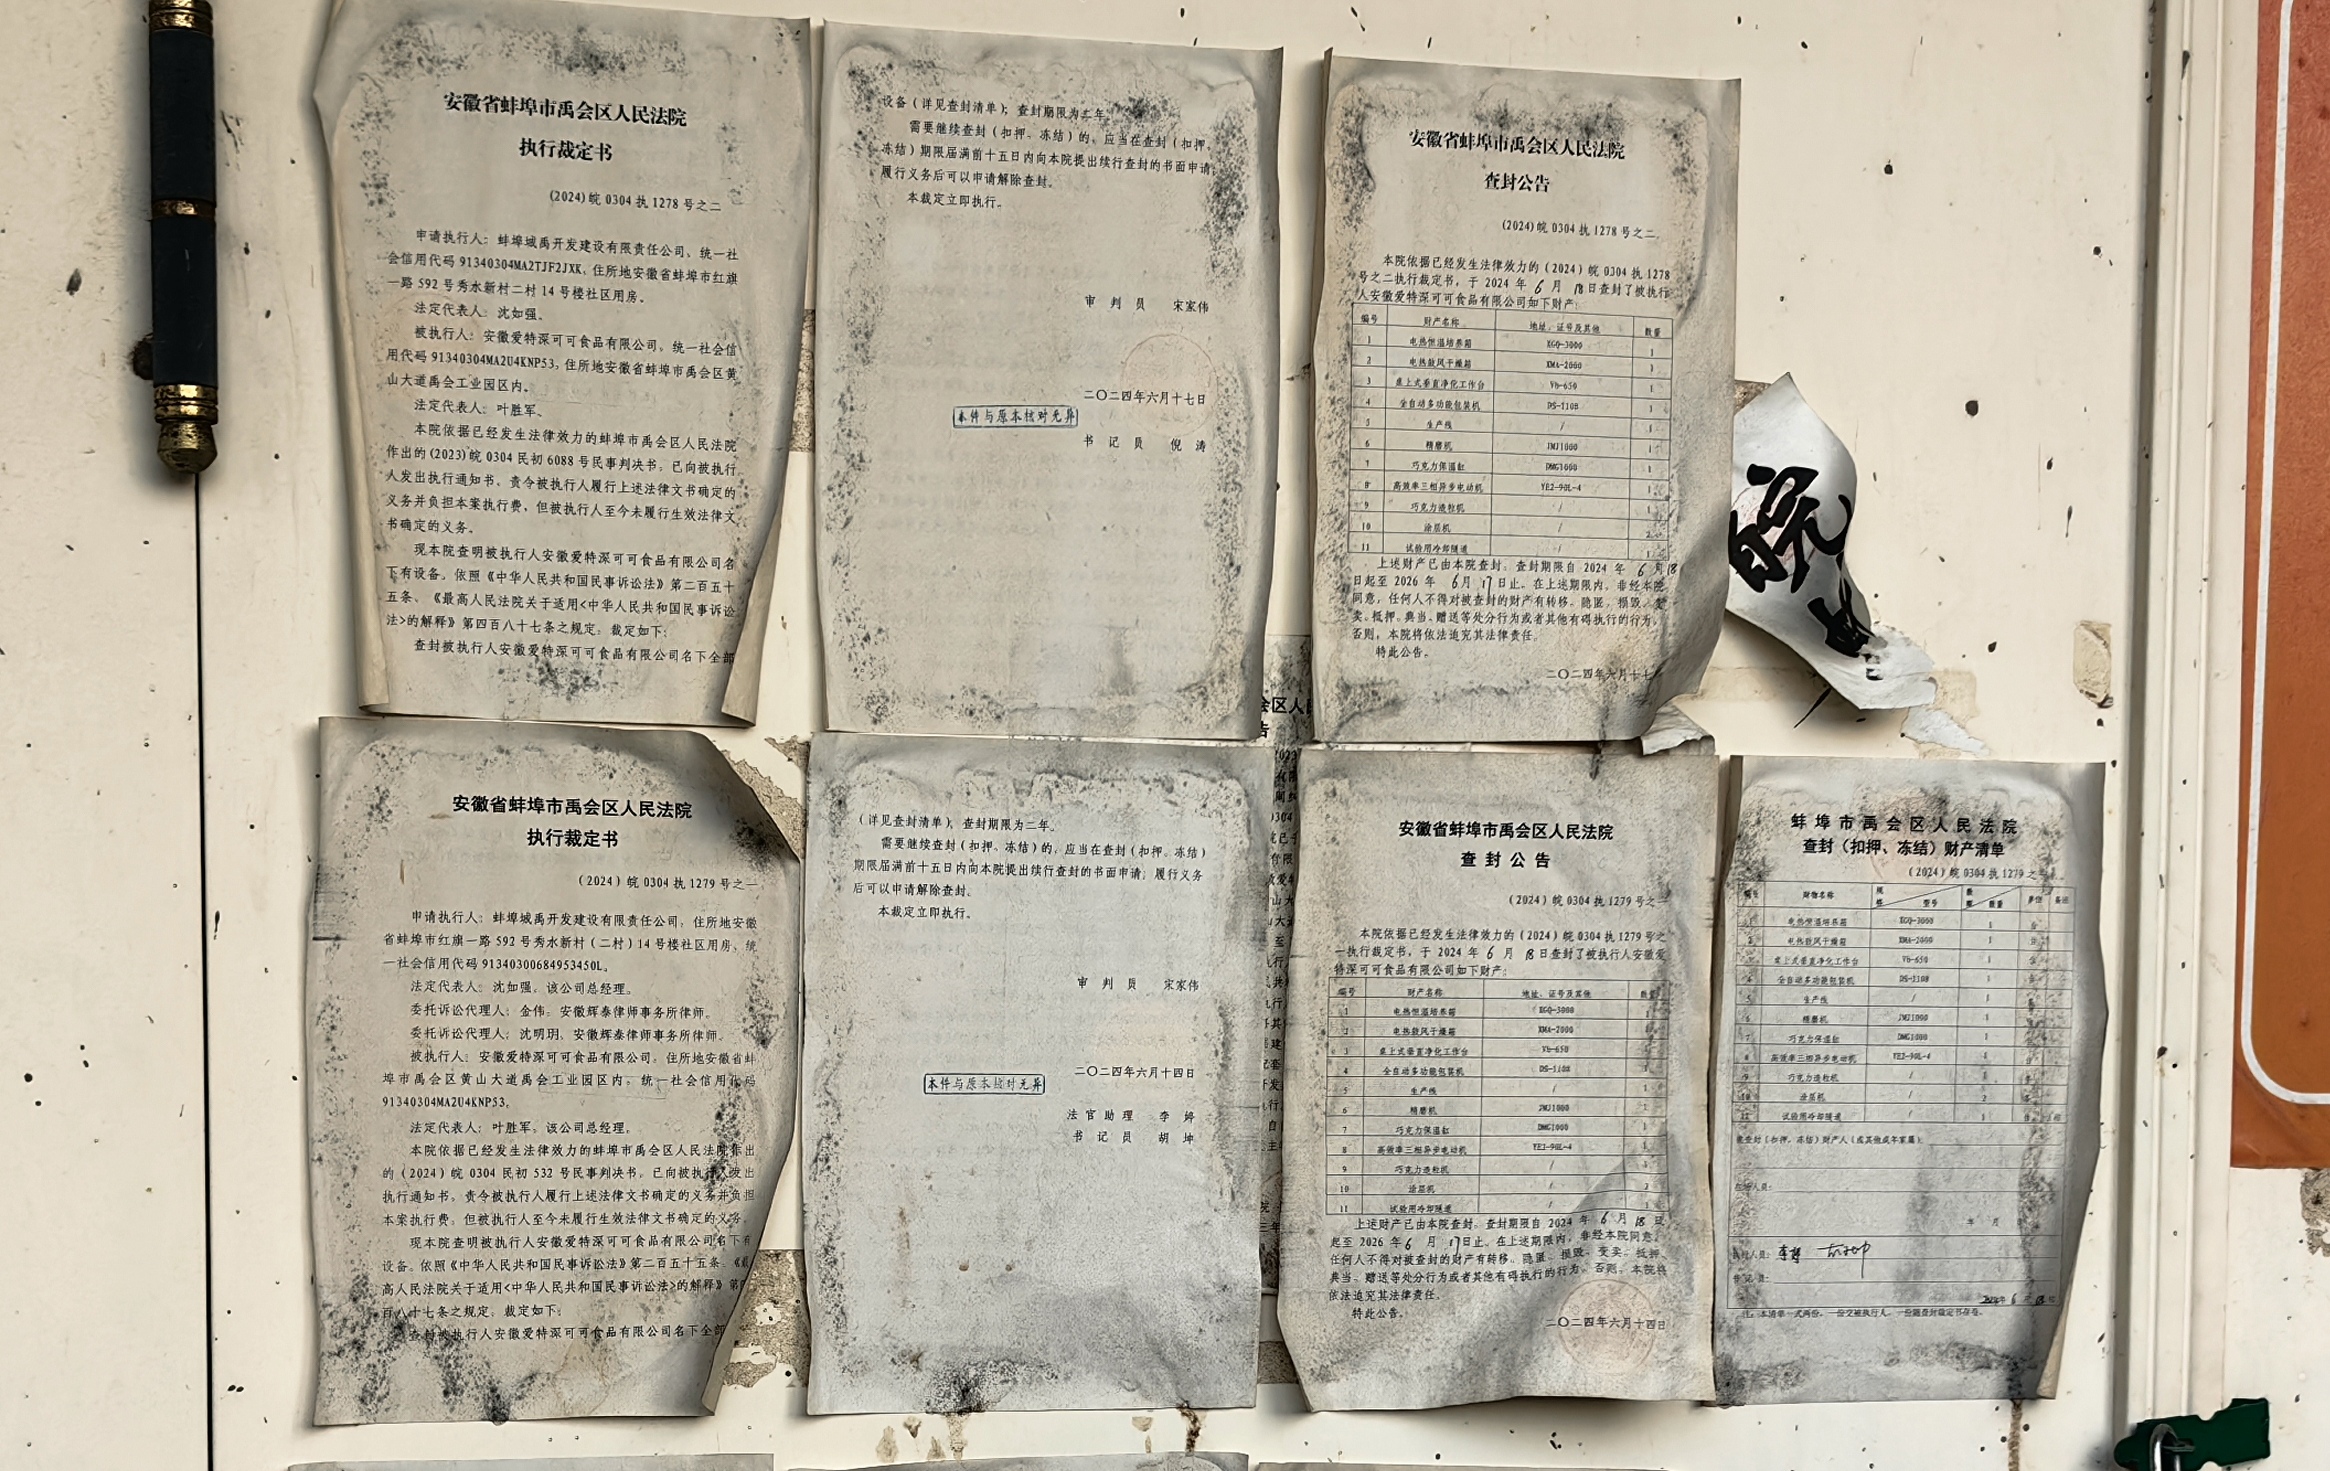 安徽省蚌埠市禹会区人民法院
执行裁定书
(2024)皖 0304 执 1278 号之二
申请执行人：蚌埠城禹开发建设有限责任公司，统一社
会信用代码 91340304MA2TJF2JXK，住所地安徽省蚌埠市红旗
一路 592 号秀水新村二村 14 号楼社区用房。
法定代表人：沈如强。
被执行人：安徽爱特深可可食品有限公司，统一社会信
用代码 91340304MA2U4KNP53，住所地安徽省蚌埠市禹会区黄
山大道禹会工业园区内。
法定代表人：叶胜军。
本院依据已经发生法律效力的蚌埠市禹会区人民法院
作出的(2023)皖 0304 民初 6088 号民事判决书，已向被执行
人发出执行通知书，责令被执行人履行上述法律文书确定的
义务并负担本案执行费，但被执行人至今未履行生效法律文
书确定的义务。
现本院查明被执行人安徽爱特深可可食品有限公司名
下有设备。依照《中华人民共和国民事诉讼法》第二百五十
五条、《最高人民法院关于适用<中华人民共和国民事诉讼
法>的解释》第四百八十七条之规定，裁定如下：
查封被执行人安徽爱特深可可食品有限公司名下全部
设备（详见查封清单），查封期限为二年。
需要继续查封（扣押、冻结）的，应当在查封（扣押、
冻结）期限届满前十五日内向本院提出续行查封的书面申请；
履行义务后可以申请解除查封。
本裁定立即执行。
审 判 员 宋家伟
二〇二四年六月十七日
本件与原本核对无异
书 记 员 倪 涛
安徽省蚌埠市禹会区人民法院
查封公告
(2024)皖 0304 执 1278 号之二
本院依据已经发生法律效力的（2024）皖 0304 执 1278
号之二执行裁定书，于 2024 年 6 月 18 日查封了被执行
人安徽爱特深可可食品有限公司如下财产：
编号 财产名称 地址、证号及其他 数量
1 电热恒温培养箱 XGQ-3000 1
2 电热鼓风干燥箱 XMA-2000 1
3 桌上式垂直净化工作台 VS-650 1
4 全自动多功能包装机 DS-110B 1
5 生产线 / 1
6 精磨机 JMJ1000 1
7 巧克力保温缸 DMG1000 1
8 高效率三相异步电动机 YE2-90L-4 1
9 巧克力造粒机 / 1
10 涂层机 / 2
11 试验用冷却隧道 / 1
上述财产已由本院查封，查封期限自 2024 年 6 月 18
日起至 2026 年 6 月 17 日止。在上述期限内，非经本院
同意，任何人不得对被查封的财产有转移、隐匿、损毁、变
卖、抵押、典当、赠送等处分行为或者其他有碍执行的行为，
否则，本院将依法追究其法律责任。
特此公告。
二〇二四年六月十七
皖
安徽省蚌埠市禹会区人民法院
执行裁定书
（2024）皖 0304 执 1279 号之一
申请执行人：蚌埠城禹开发建设有限责任公司，住所地安徽
省蚌埠市红旗一路 592 号秀水新村（二村）14 号楼社区用房，统
一社会信用代码 91340300684953450L。
法定代表人：沈如强，该公司总经理。
委托诉讼代理人：金伟，安徽辉泰律师事务所律师。
委托诉讼代理人：沈明玥，安徽辉泰律师事务所律师。
被执行人：安徽爱特深可可食品有限公司，住所地安徽省蚌
埠市禹会区黄山大道禹会工业园区内，统一社会信用代码
91340304MA2U4KNP53。
法定代表人：叶胜军，该公司总经理。
本院依据已经发生法律效力的蚌埠市禹会区人民法院作出
的（2024）皖 0304 民初 532 号民事判决书，已向被执行人发出
执行通知书，责令被执行人履行上述法律文书确定的义务并负担
本案执行费，但被执行人至今未履行生效法律文书确定的义务。
现本院查明被执行人安徽爱特深可可食品有限公司名下有
设备。依照《中华人民共和国民事诉讼法》第二百五十五条、《最
高人民法院关于适用<中华人民共和国民事诉讼法>的解释》第四
百八十七条之规定，裁定如下：
查封被执行人安徽爱特深可可食品有限公司名下全部
（详见查封清单），查封期限为二年。
需要继续查封（扣押、冻结）的，应当在查封（扣押、冻结）
期限届满前十五日内向本院提出续行查封的书面申请；履行义务
后可以申请解除查封。
本裁定立即执行。
审 判 员 宋家伟
二〇二四年六月十四日
本件与原本核对无异
法 官 助 理 李 婷
书 记 员 胡 坤
安徽省蚌埠市禹会区人民法院
查 封 公 告
（2024）皖 0304 执 1279 号之一
本院依据已经发生法律效力的（2024）皖 0304 执 1279 号之
一执行裁定书，于 2024 年 6 月 18 日查封了被执行人安徽爱
特深可可食品有限公司如下财产：
编号 财产名称 地址、证号及其他 数量
1 电热恒温培养箱 XGQ-3000 1
2 电热鼓风干燥箱 XMA-2000 1
3 桌上式垂直净化工作台 VS-650 1
4 全自动多功能包装机 DS-110B 1
5 生产线 / 1
6 精磨机 JMJ1000 1
7 巧克力保温缸 DMG1000 1
8 高效率三相异步电动机 YE2-90L-4 1
9 巧克力造粒机 / 1
10 涂层机 / 2
11 试验用冷却隧道 / 1
上述财产已由本院查封，查封期限自 2024 年 6 月 18 日
起至 2026 年 6 月 17 日止。在上述期限内，非经本院同意，
任何人不得对被查封的财产有转移、隐匿、损毁、变卖、抵押、
典当、赠送等处分行为或者其他有碍执行的行为，否则，本院将
依法追究其法律责任。
特此公告。
二〇二四年六月十四日
蚌埠市禹会区人民法院
查封（扣押、冻结）财产清单
（2024）皖 0304 执 1279 之
编号 财物名称 规格 型号 数额 数量 单位 备注
1 电热恒温培养箱 XGQ-3000 1 台
2 电热鼓风干燥箱 XMA-2000 1 台
3 桌上式垂直净化工作台 VS-650 1 台
4 全自动多功能包装机 DS-110B 1 台
5 生产线 / 1
6 精磨机 JMJ1000 1
7 巧克力保温缸 DMG1000 1
8 高效率三相异步电动机 YE2-90L-4 1 台
9 巧克力造粒机 / 1
10 涂层机 / 2
11 试验用冷却隧道 / 1
被查封（扣押、冻结）财产人（或其他成年家属）：
在场人员：
年 月
执行人员：李婷
书记员：
2024年 6 月 18 日
注：本清单一式两份，一份交被执行人，一份随查封裁定书存卷。